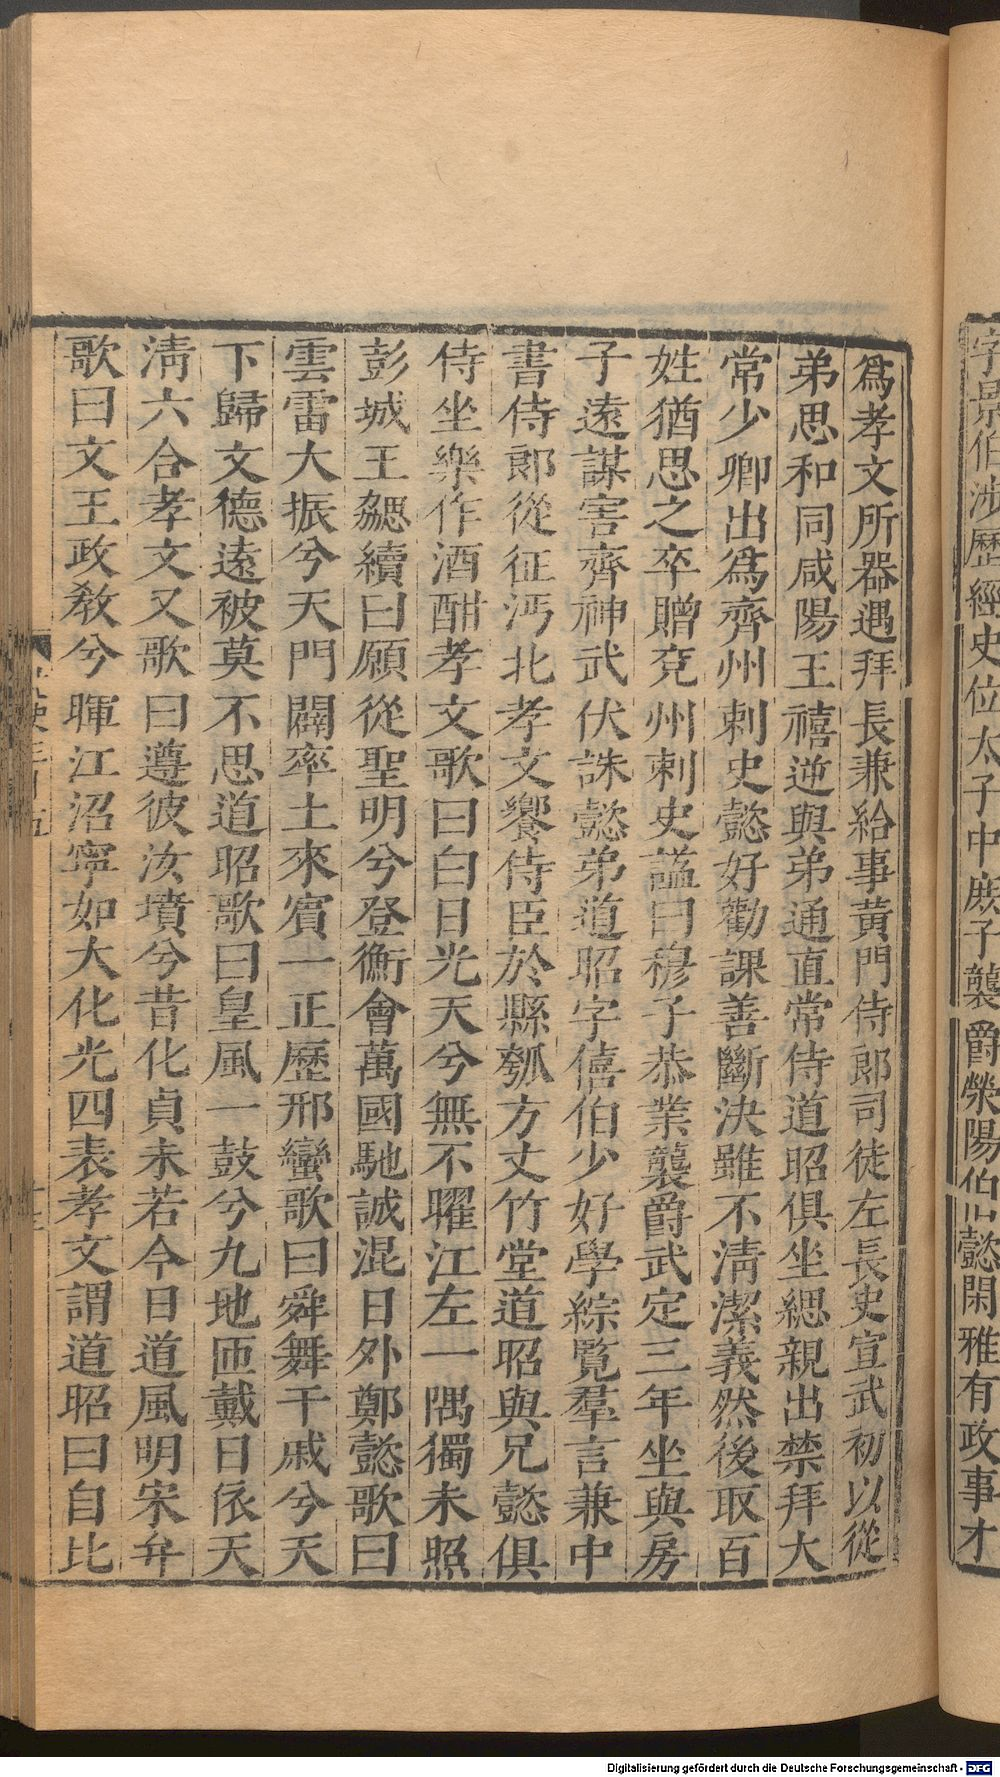 字景伯涉歷經史位太子中庶子襲爵滎陽伯懿閑雅有政事才
爲孝文所器遇拜長兼給事黃門侍郎司徒左長史宣武初以從
弟思和同咸陽王禧逆與弟通直常侍道昭俱坐緦親出禁拜大
常少卿出爲齊州刺史懿好勸課善斷決雖不淸潔義然後取百
姓猶思之卒贈兗州刺史謚曰穆子恭業襲爵武定三年坐與房
子遠謀害齊神武伏誅懿弟道昭字僖伯少好學綜覽羣言兼中
書侍郎從征沔北孝文饗侍臣於縣瓠方丈竹堂道昭與兄懿俱
侍坐樂作酒酣孝文歌曰白日光天兮無不曜江左一隅獨未照
彭城王勰續曰願從聖明兮登衡會萬國馳誠混日外鄭懿歌曰
雲雷大振兮天門闢率土來賓一正歷邢巒歌曰舜舞干戚兮天
下歸文德遠被莫不思道昭歌曰皇風一鼓兮九地匝戴日依天
淸六合孝文又歌曰遵彼汝墳兮昔化貞未若今日道風明宋弁
歌曰文王政敎兮暉江沼寧如大化光四表孝文謂道昭曰自比
Digitalisierung gefördert durch die Deutsche Forschungsgemeinschaft - DFG